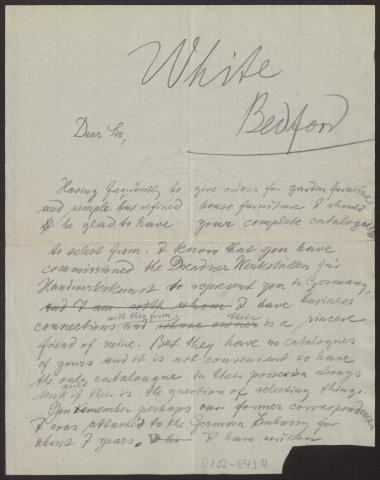 White
Bedford
Dear Sir,
Having frequently to give orders for garden furniture
and simple but refined house furniture I should
be glad to have your complete catalogues
to select from. I know that you have
commissioned the Dresdner Werkstätten für
Handwerkskunst to represent you in Germany,
and I am with whom I have business
connections and with this firm, whose their is a sincere
friend of mine. But they have no catalogues
of yours and it is not convenient to have
the only catalogue in their possession always
sent if there is the question of selecting things.
You remember perhaps our former correspondence,
I was attached to the German Embassy for
about 7 years. I have written
0102-843a